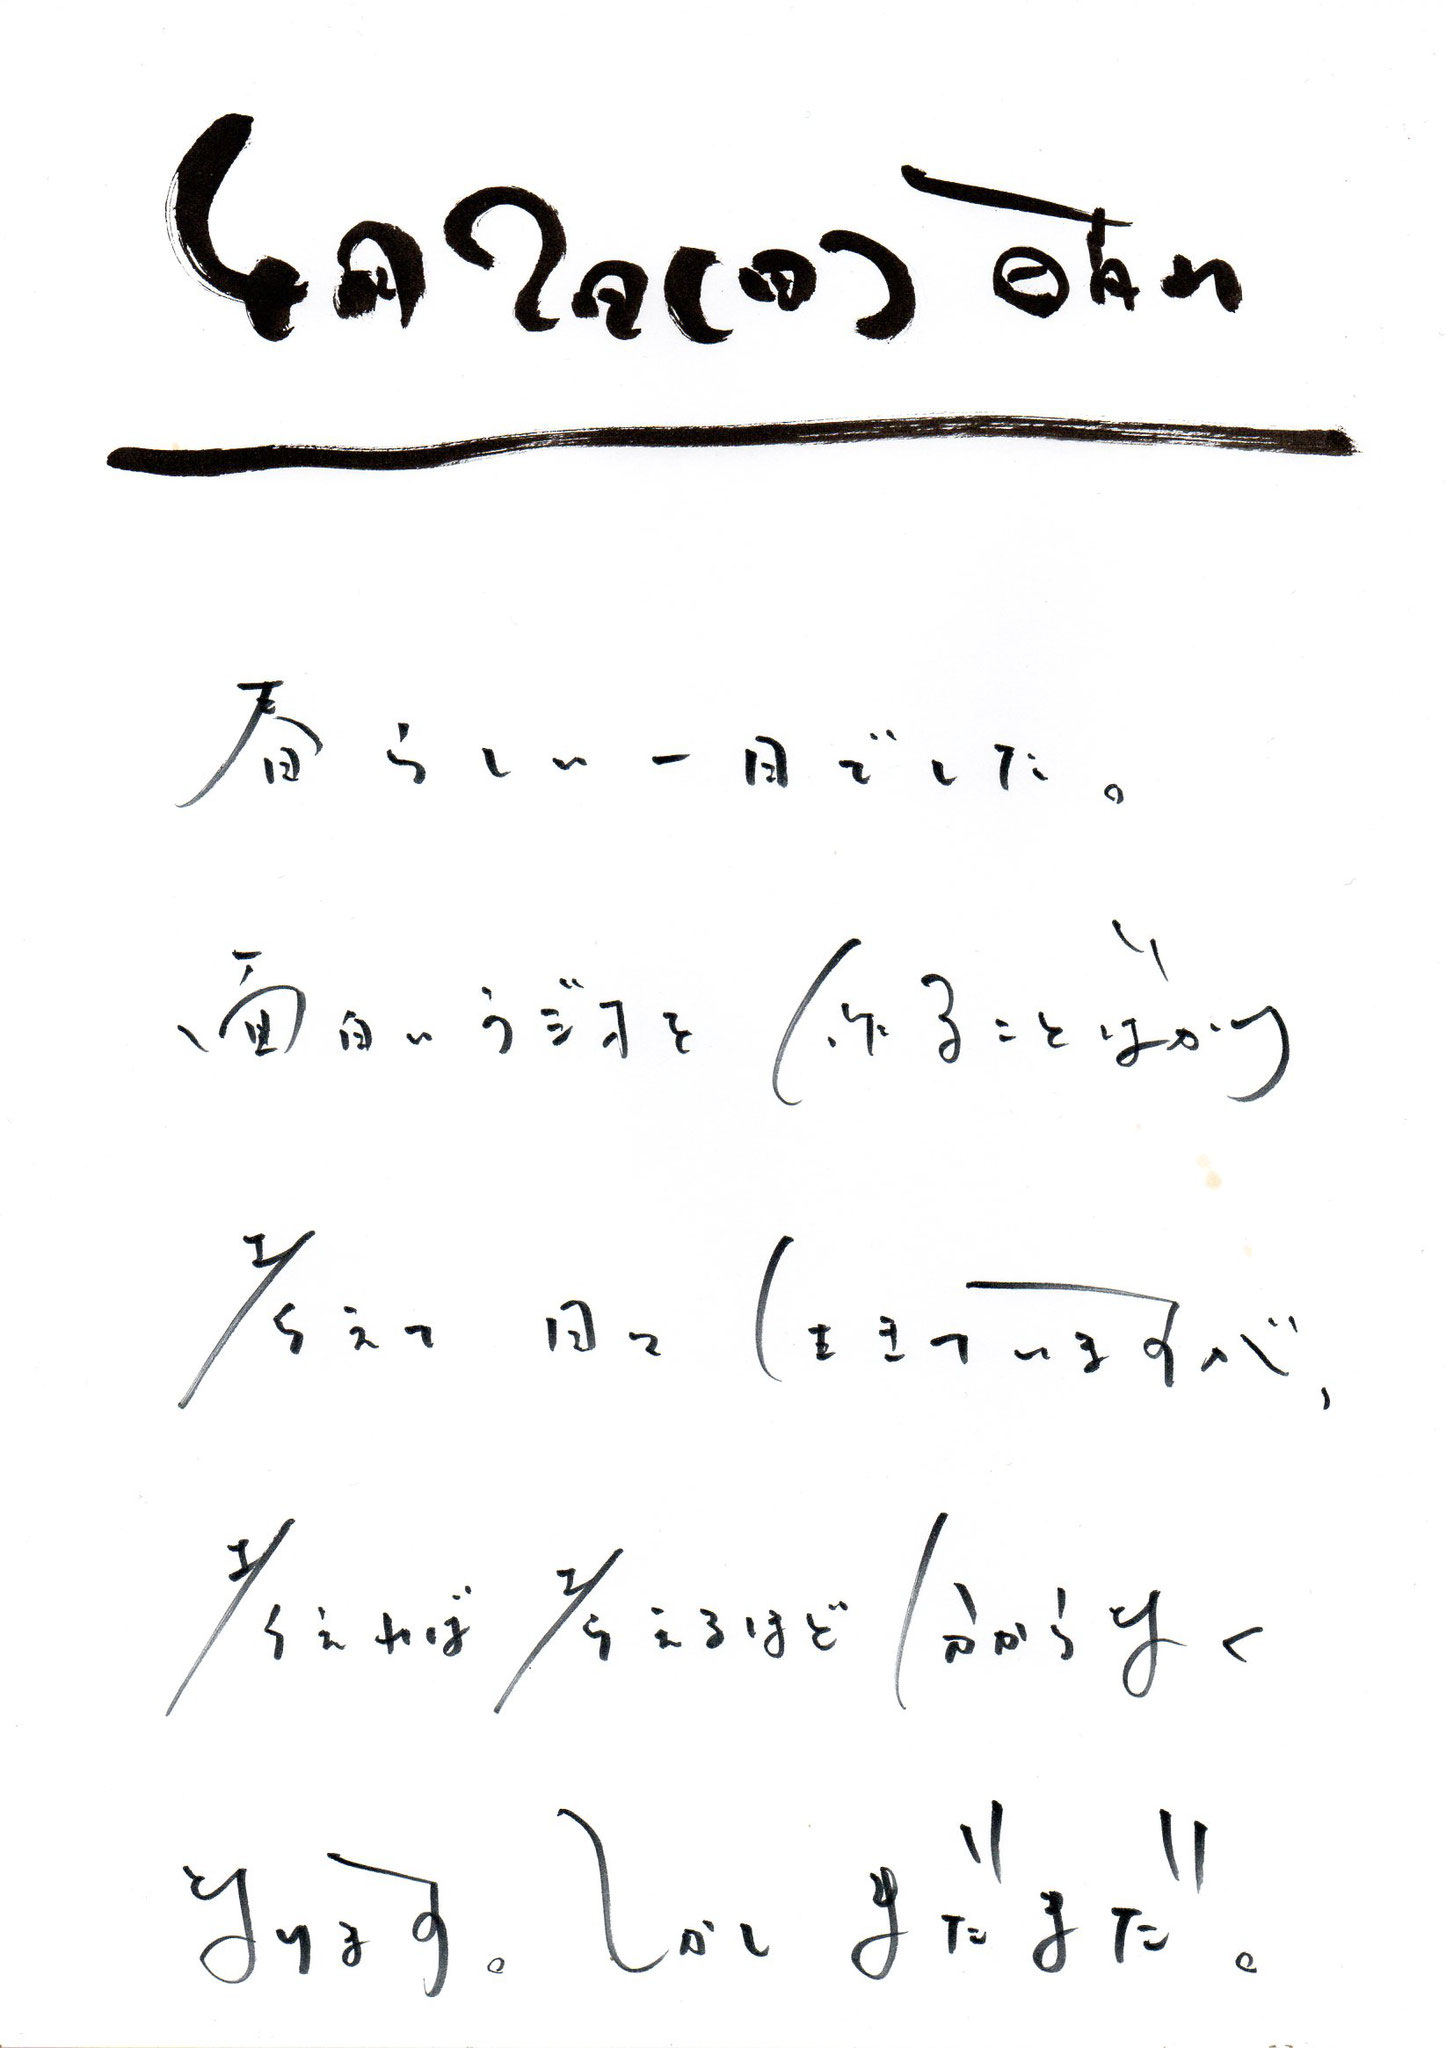 4月2日(日) 晴れ
春らしい一日でした。
面白いラジオを作ることばかり
考えて日々生きていますが、
考えれば考えるほど分からなく
なります。しかしまだまだ。